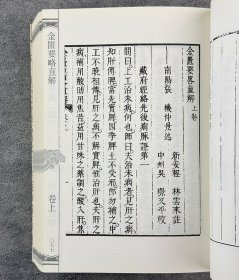 金匱要略直解上卷
新安程 林雲來註
南陽張 機仲景述
中州吳
臟腑經絡先後病脈證第一
問曰上工治未病何也師曰夫治未病者見肝之病
知肝傳脾當先實脾四季脾王不受邪即勿補之中
工不曉相傳見肝之病不解實脾惟治肝也夫肝之
病補用酸助用焦苦益用甘味之藥調之酸入肝焦
金匱要略直解
卷上
〇〇七